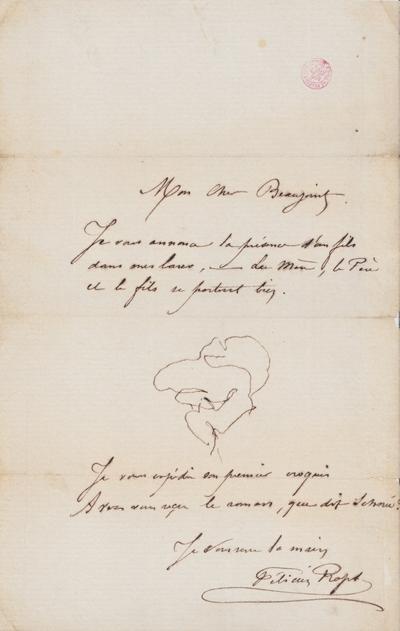 Mon Cher Beaujoint.
Je vous annonce la présence d'un fils
dans mes lares, — La Mère, le Père
et le fils se portent bien.
Je vous expédie son premier croquis
Avez vous reçu le roman, que dit
Je vous serre la main
Félicien Rops